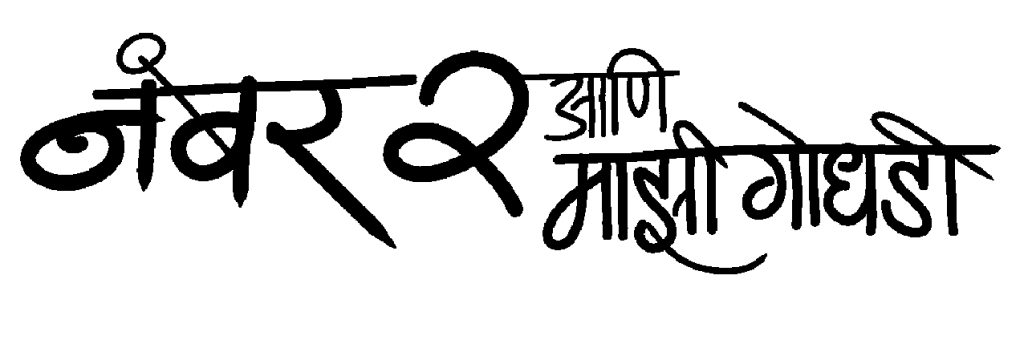 नंबर २ आणि
माझी गोधडी